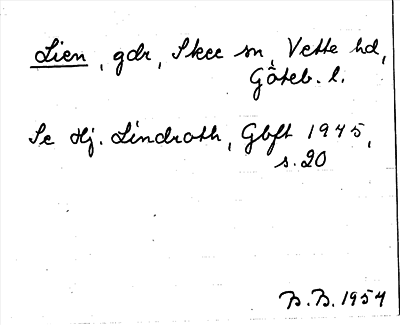 Lien, gdr, Skee sn, Vette hd,
Göteb. l.
Se Hj. Lindroth, Gbft 1945,
s. 20
B. B. 1954